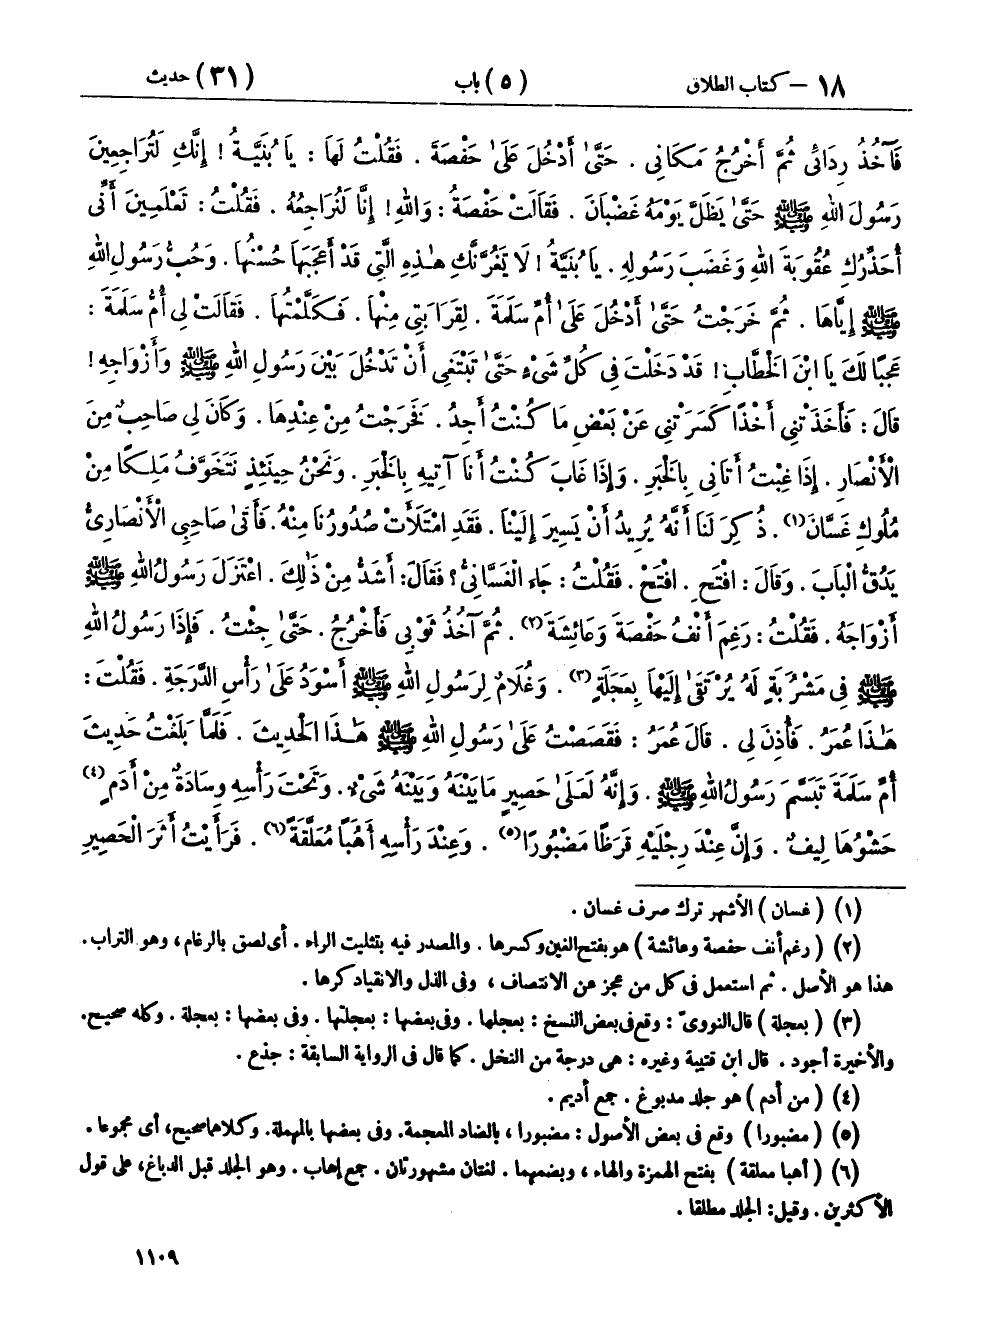 ١٨ – كتاب الطلاق (٥) باب (٣١) حديث
فَآخُذُ رِدَائِي ثُمَّ أَخْرُجُ مَكَانِي . حَتَّىٰ أَدْخُلَ عَلَىٰ حَفْصَةَ . فَقُلْتُ لَهَا : يَا بُنَيَّةُ ! إِنَّكِ لَتُرَاجِعِينَ
رَسُولَ اللهِ ﷺ حَتَّىٰ يَظَلَّ يَوْمَهُ غَضْبَانَ . فَقَالَتْ حَفْصَةُ : وَاللهِ! إِنَّا لَنُرَاجِعُهُ . فَقُلْتُ : تَعْلَمِينَ أَنِّي
أُحَذِّرُكِ عُقُوبَةَ اللهِ وَغَضَبَ رَسُولِهِ . يَا بُنَيَّةُ ! لَا يَغُرَّنَّكِ هَـٰذِهِ الَّتِي قَدْ أَعْجَبَهَا حُسْنُهَا . وَحُبُّ رَسُولِ اللهِ
ﷺ إِيَّاهَا . ثُمَّ خَرَجْتُ حَتَّىٰ أَدْخُلَ عَلَىٰ أُمِّ سَلَمَةَ . لِقَرَابَتِي مِنْهَا . فَكَلَّمْتُهَا . فَقَالَتْ لِي أُمُّ سَلَمَةَ :
عَجَبًا لَكَ يَا ابْنَ الْخَطَّابِ ! قَدْ دَخَلْتَ فِي كُلِّ شَيْءٍ حَتَّىٰ تَبْتَغِي أَنْ تَدْخُلَ بَيْنَ رَسُولِ اللهِ ﷺ وَأَزْوَاجِهِ !
قَالَ : فَأَخَذَتْنِي أَخْذًا كَسَرَتْنِي عَنْ بَعْضِ مَا كُنْتُ أَجِدُ . فَخَرَجْتُ مِنْ عِنْدِهَا . وَكَانَ لِي صَاحِبٌ مِنَ
الْأَنْصَارِ . إِذَا غِبْتُ أَتَانِي بِالْخَبَرِ . وَإِذَا غَابَ كُنْتُ أَنَا آتِيهِ بِالْخَبَرِ . وَنَحْنُ حِينَئِذٍ نَتَخَوَّفُ مَلِكًا مِنْ
مُلُوكِ غَسَّانَ (١) . ذُكِرَ لَنَا أَنَّهُ يُرِيدُ أَنْ يَسِيرَ إِلَيْنَا . فَقَدِ امْتَلَأَتْ صُدُورُنَا مِنْهُ . فَأَتَىٰ صَاحِبِي الْأَنْصَارِيُّ
يَدُقُّ الْبَابَ . وَقَالَ : افْتَحْ . افْتَحْ . فَقُلْتُ : جَاءَ الْغَسَّانِيُّ ؟ فَقَالَ : أَشَدُّ مِنْ ذَٰلِكَ . اعْتَزَلَ رَسُولُ اللهِ ﷺ
أَزْوَاجَهُ . فَقُلْتُ : رَغِمَ أَنْفُ حَفْصَةَ وَعَائِشَةَ (٢) . ثُمَّ آخُذُ ثَوْبِي فَأَخْرُجُ . حَتَّىٰ جِئْتُ . فَإِذَا رَسُولُ اللهِ
ﷺ فِي مَشْرُبَةٍ لَهُ يُرْتَقَىٰ إِلَيْهَا بِعَجَلَةٍ (٣) . وَغُلَامٌ لِرَسُولِ اللهِ ﷺ أَسْوَدُ عَلَىٰ رَأْسِ الدَّرَجَةِ . فَقُلْتُ :
هَـٰذَا عُمَرُ . فَأُذِنَ لِي . قَالَ عُمَرُ : فَقَصَصْتُ عَلَىٰ رَسُولِ اللهِ ﷺ هَـٰذَا الْحَدِيثَ . فَلَمَّا بَلَغْتُ حَدِيثَ
أُمِّ سَلَمَةَ تَبَسَّمَ رَسُولُ اللهِ ﷺ . وَإِنَّهُ لَعَلَىٰ حَصِيرٍ مَا بَيْنَهُ وَبَيْنَهُ شَيْءٌ . وَتَحْتَ رَأْسِهِ وِسَادَةٌ مِنْ أَدَمٍ (٤)
حَشْوُهَا لِيفٌ . وَإِنَّ عِنْدَ رِجْلَيْهِ قَرَظًا مَضْبُورًا (٥) . وَعِنْدَ رَأْسِهِ أَهَبًا مُعَلَّقَةً (٦) . فَرَأَيْتُ أَثَرَ الْحَصِيرِ
(١) ( غسان ) الأشهر ترك صرف غسان .
(٢) ( رغم أنف حفصة وعائشة ) هو بفتح الغين وكسرها . والمصدر فيه بتثليث الراء . أى لصق بالرغام ، وهو التراب .
هذا هو الأصل . ثم استعمل فى كل من عجز عن الانتصاف ، وفى الذل والانقياد كرها .
(٣) ( بعجلة ) قال النووىّ : وقع فى بعض النسخ : بعجلها . وفى بعضها : بعجلتها . وفى بعضها : بعجلة . وكله صحيح .
والأخيرة أجود . قال ابن قتيبة وغيره : هى درجة من النخل . كما قال فى الرواية السابقة : جذع .
(٤) ( من أدم ) هو جلد مدبوغ . جمع أديم .
(٥) ( مضبورا ) وقع فى بعض الأصول : مضبورا ، بالضاد المعجمة . وفى بعضها بالمهملة . وكلاهما صحيح ، أى مجموعا .
(٦) ( أهبا معلقة ) بفتح الهمزة والهاء ، وبضمهما . لغتان مشهورتان . جمع إهاب . وهو الجلد قبل الدباغ ، على قول
الأكثرين . وقيل : الجلد مطلقا .
١١٠٩